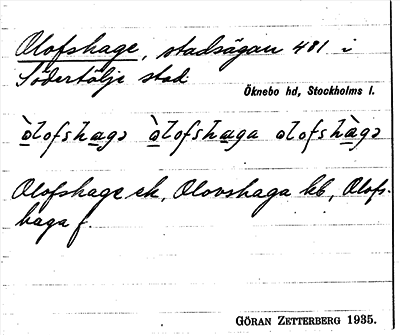 Olofshage, stadsägan 481 i
Södertälje stad
Öknebo hd, Stockholms l.
òlofshagə òlofshaga olofshàgə
Olofshage ek, Olovshaga kb, Olofs-
haga f.
GÖRAN ZETTERBERG 1935.